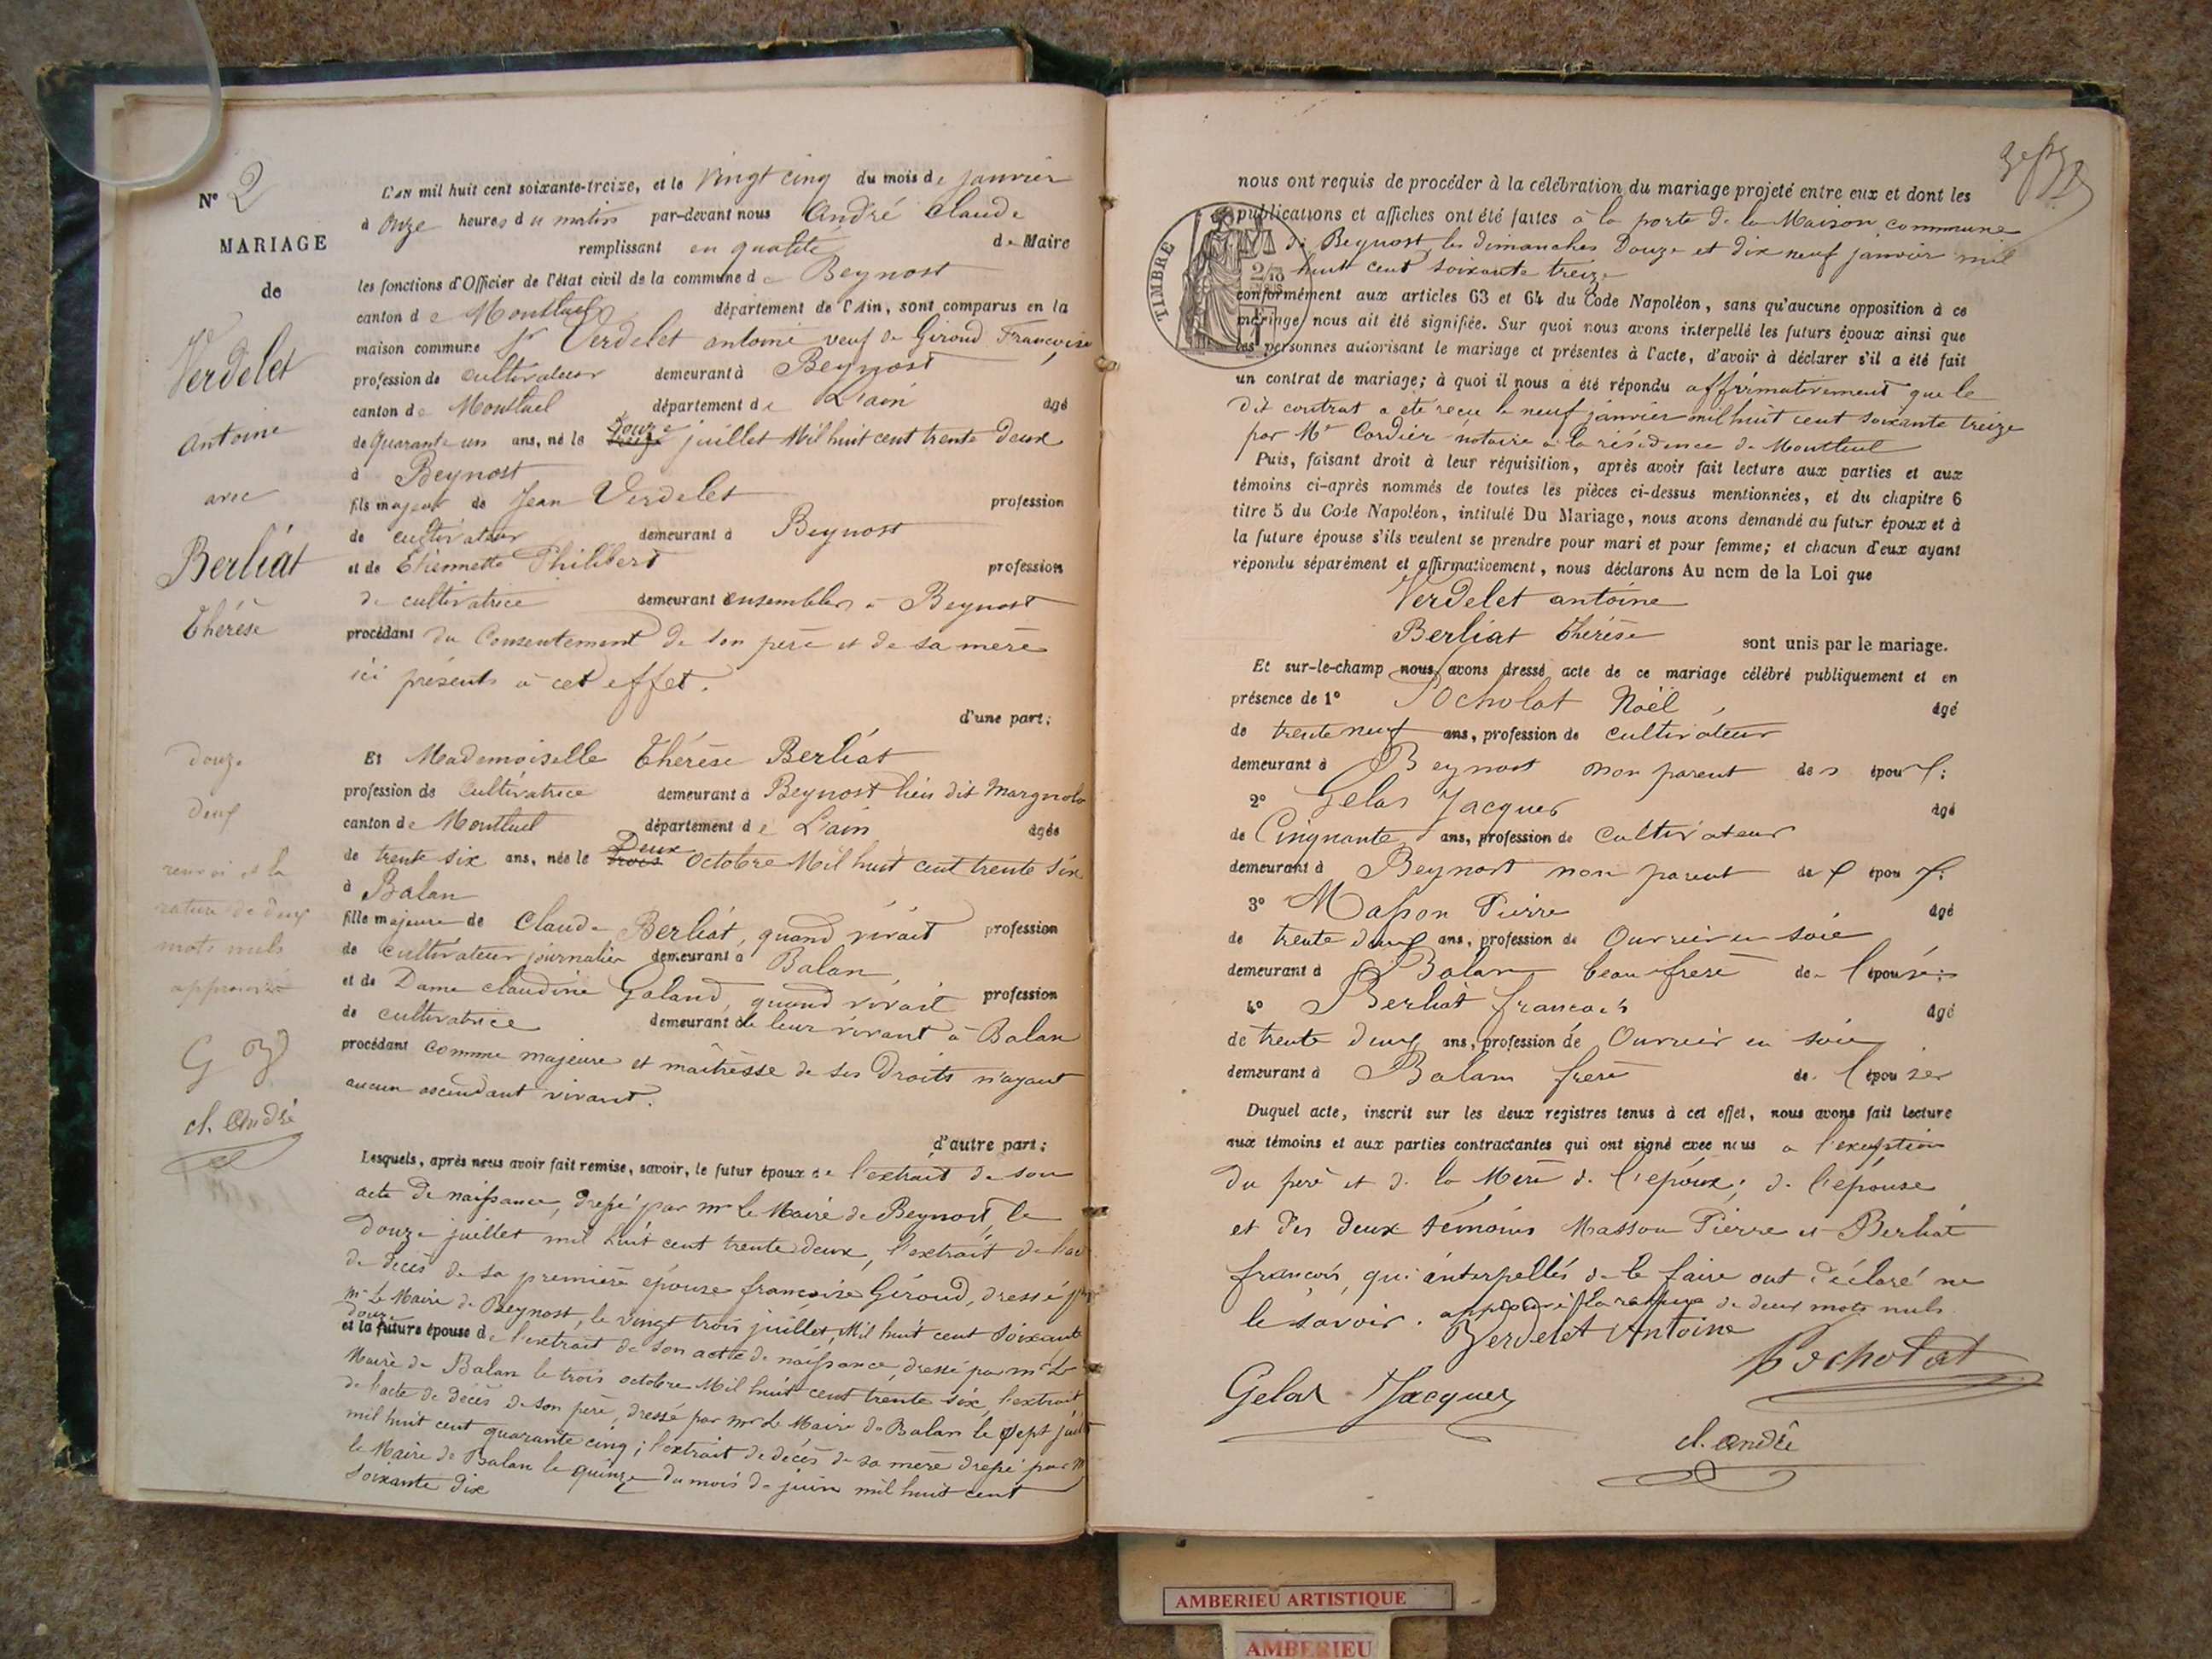 N° 2
MARIAGE
de
Verdelet
Antoine
avec
Berliat
Thérèse
douze
deux
renvoi et la
rature de deux
mots nuls
approuvés
G
cl. André
L'AN mil huit cent soixante-treize, et le vingt cinq du mois de janvier
à onze heures du matin par-devant nous André Claude
remplissant en qualité de Maire
les fonctions d'Officier de l'état civil de la commune de Beynost
canton de Montluel département de l'Ain, sont comparus en la
maison commune Sr Verdelet antoine veuf de Giroud Françoise
profession de cultivateur demeurant à Beynost
canton de Montluel département de L'ain âgé
de quarante un ans, né le treize douze juillet Mil huit cent trente deux
à Beynost
fils majeur de Jean Verdelet profession
de cultivateur demeurant à Beynost
et de Etiennette Philibert profession
de cultivatrice demeurant ensembles à Beynost
procédant du Consentement de son père et de sa mère
ici présents à cet effet.
d'une part;
Et Mademoiselle Thérèse Berliat
profession de Cultivatrice demeurant à Beynost lieu dit Margnolo
canton de Montluel département de L'ain âgée
de trente six ans, née le trois Deux octobre Mil huit cent trente six
à Balan
fille majeure de Claude Berliat, quand vivait profession
de cultivateur journalier demeurant à Balan
et de Dame claudine Galand, quand vivait profession
de cultivatrice demeurant de leur vivant à Balan
procédant comme majeure et maîtresse de ses Droits n'ayant
aucun ascendant vivant.
d'autre part;
Lesquels, après nous avoir fait remise, savoir, le futur époux de l'extrait de son
acte de naissance, dressé par mr le Maire de Beynost, le
douze juillet mil huit cent trente deux, l'extrait de l'acte
de décès de sa première épouse françoise Giroud, dressé par
mr Le Maire de Beynost, le vingt trois juillet, Mil huit cent soixante
douze
et la future épouse de l'extrait de son acte de naissance, dressé par mr Le
Maire de Balan le trois octobre Mil huit cent trente six, l'extrait
de l'acte de décès de son père, dressé par mr Le Maire de Balan le sept
mil huit cent quarante cinq; l'extrait de décès de sa mère dressé par M
le Maire de Balan le quinze du mois de juin mil huit cent
soixante dix
nous ont requis de procéder à la célébration du mariage projeté entre eux et dont les
publications et affiches ont été faites à la porte de la Maison commune
de Beynost les dimanches Douze et dix neuf janvier mil
huit cent soixante treize
TIMBRE
2/10
EN SUS
conformément aux articles 63 et 64 du Code Napoléon, sans qu'aucune opposition à ce
mariage nous ait été signifiée. Sur quoi nous avons interpellé les futurs époux ainsi que
les personnes autorisant le mariage et présentes à l'acte, d'avoir à déclarer s'il a été fait
un contrat de mariage; à quoi il nous a été répondu affirmativement que le
dit contrat a été reçu le neuf janvier mil huit cent soixante treize
par Me Cordier notaire à la résidence de Montluel
Puis, faisant droit à leur réquisition, après avoir fait lecture aux parties et aux
témoins ci-après nommés de toutes les pièces ci-dessus mentionnées, et du chapitre 6
titre 5 du Code Napoléon, intitulé Du Mariage, nous avons demandé au futur époux et à
la future épouse s'ils veulent se prendre pour mari et pour femme; et chacun d'eux ayant
répondu séparément et affirmativement, nous déclarons Au nom de la Loi que
Verdelet antoine
Berliat Thérèse sont unis par le mariage.
Et sur-le-champ nous avons dressé acte de ce mariage célébré publiquement et en
présence de 1° Pocholat Noël, âgé
de trente neuf ans, profession de cultivateur
demeurant à Beynost non parent des époux;
2° Gelas Jacques âgé
de Cinquante ans, profession de Cultivateur
demeurant à Beynost non parent des époux;
3° Masson Pierre âgé
de trente deux ans, profession de Ouvrier en soie
demeurant à Balan beau frère de l'épouse;
4° Berliat françois âgé
de trente deux ans, profession de Ouvrier en soie
demeurant à Balan frère de l'épouse
Duquel acte, inscrit sur les deux registres tenus à cet effet, nous avons fait lecture
aux témoins et aux parties contractantes qui ont signé avec nous à l'exception
du père et de la Mère de l'époux; de l'épouse
et des deux témoins Masson Pierre et Berliat
françois, qui interpellés de le faire ont déclaré ne
le savoir. approuvé la rature de deux mots nuls
Verdelet Antoine
Pocholat
Gelas Jacques
cl. André
AMBERIEU ARTISTIQUE
AMBERIEU